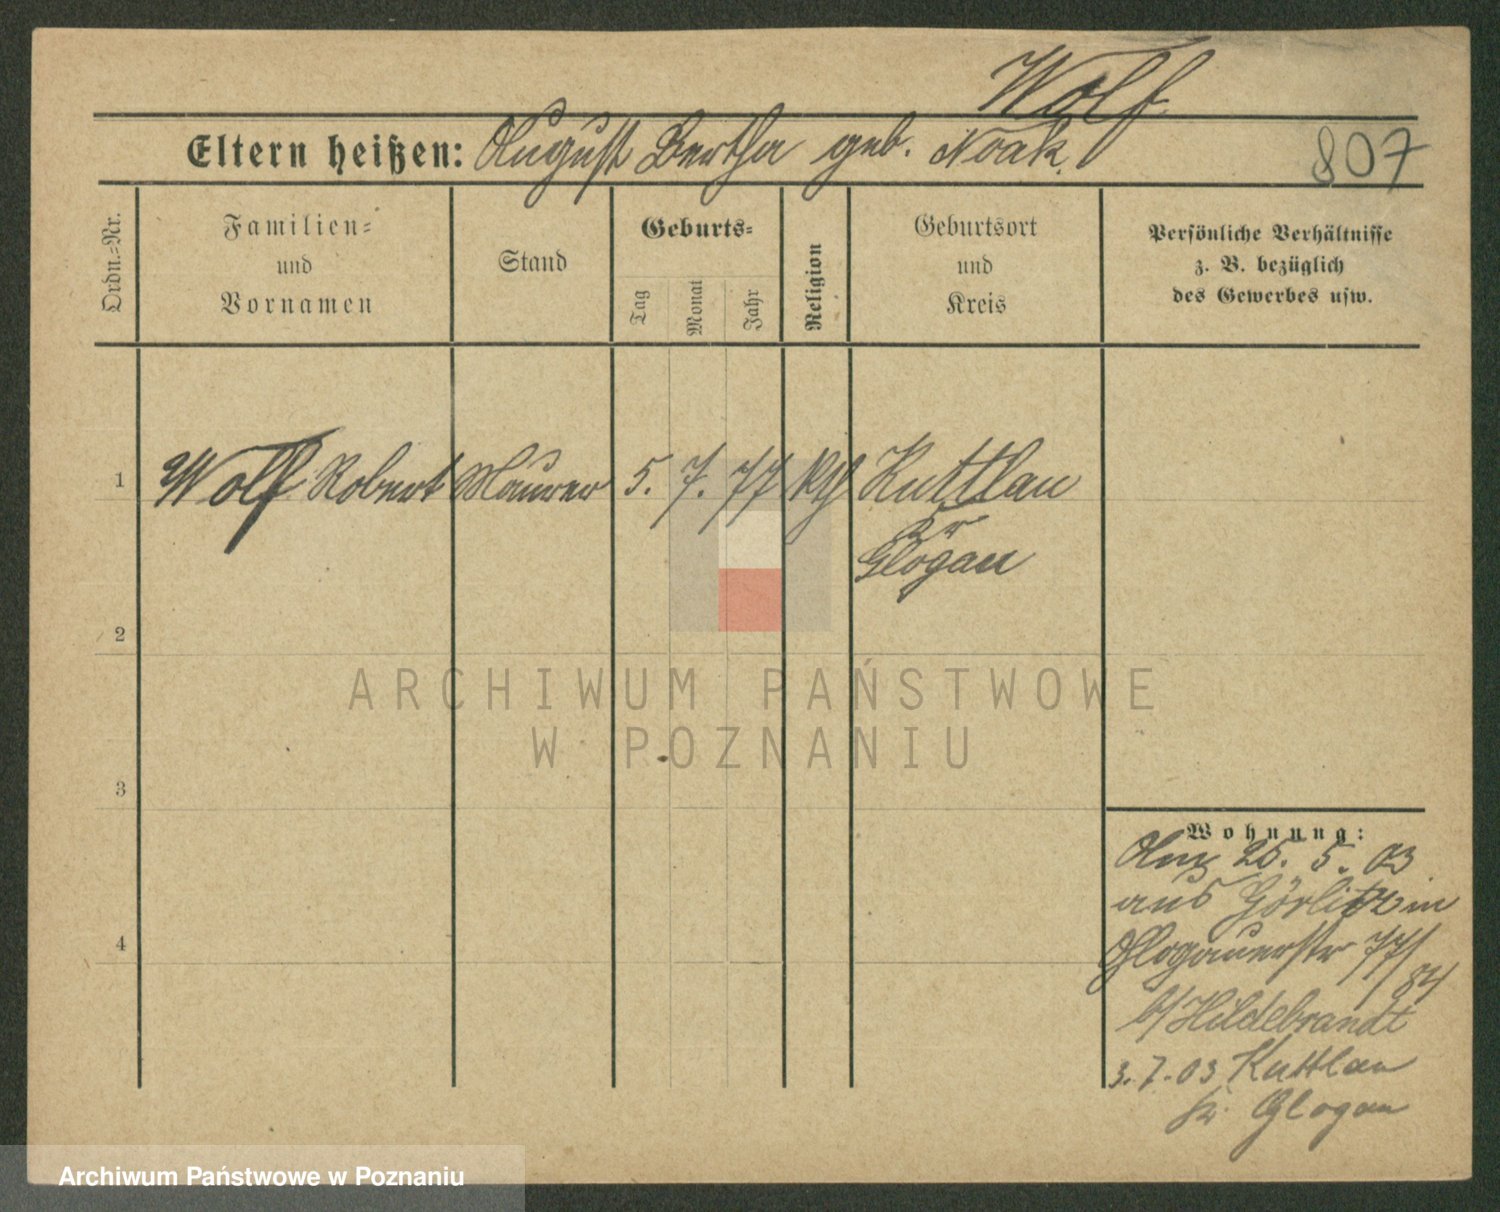 Wolf
Eltern heißen: August Bertha geb. Noak.
807
Ordn.-Nr.
Familien-
und
Vornamen
Stand
Geburts-
Tag
Monat
Jahr
Religion
Geburtsort
und
Kreis
Persönliche Verhältnisse
z. B. bezüglich
des Gewerbes usw.
1 Wolf Robert Maurer 5. 7. 77 Kuttlau
Kr
Glogau
2
3
4
Wohnung:
5. 03
aus Görlitz in
Glogauerstr 77/
84
b/ Hildebrandt
3. 7. 03 Kuttlau
Kr. Glogau
ARCHIWUM PAŃSTWOWE
W POZNANIU
Archiwum Państwowe w Poznaniu